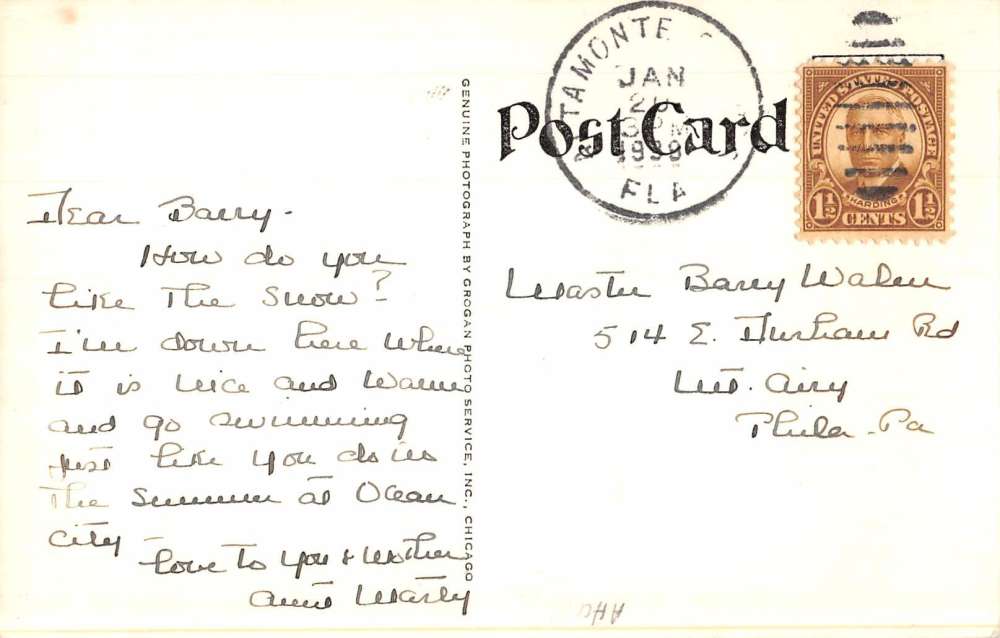 Dear Barry -
How do you
like the snow?
I'm down here where
it is nice and warm
and go swimming
just like you do in
the summer at Ocean
City -
love to you & mother
aunt Marty
GENUINE PHOTOGRAPH BY GROGAN PHOTO SERVICE, INC., CHICAGO
Post Card
TAMONTE
JAN
3 PM
FLA
UNITED STATES POSTAGE
HARDING
1½ CENTS 1½
Master Barry
514 E. Durham Rd
Mt. Airy
Phila - Pa